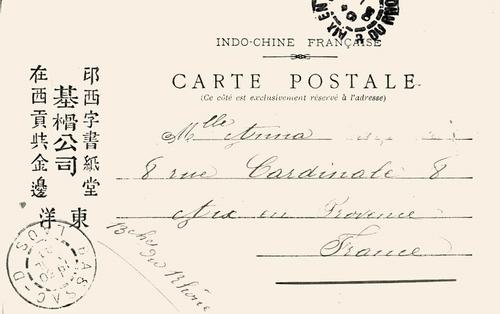 INDO-CHINE FRANÇAISE
CARTE POSTALE
(Ce côté est exclusivement réservé à l'adresse)
Mlle Anna
8 rue Cardinale 8
Aix en Provence
Bches du Rhône
France
印西字書紙堂
基榾公司
在西貢共金邊
東洋
BASSAC-D
LAOS